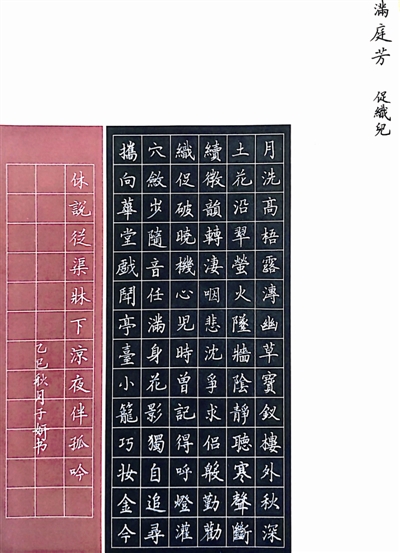 滿庭芳 促織兒
月洗高梧露漙幽草寶釵樓外秋深
土花沿翠螢火墜牆陰靜聽寒聲斷
續微韻轉淒咽悲沈爭求侶殷勤勸
織促破曉機心兒時曾記得呼燈灌
穴斂步隨音任滿身花影獨自追尋
攜向華堂戲鬥亭臺小籠巧妝金今
休說從渠牀下涼夜伴孤吟
乙巳秋月子妍书